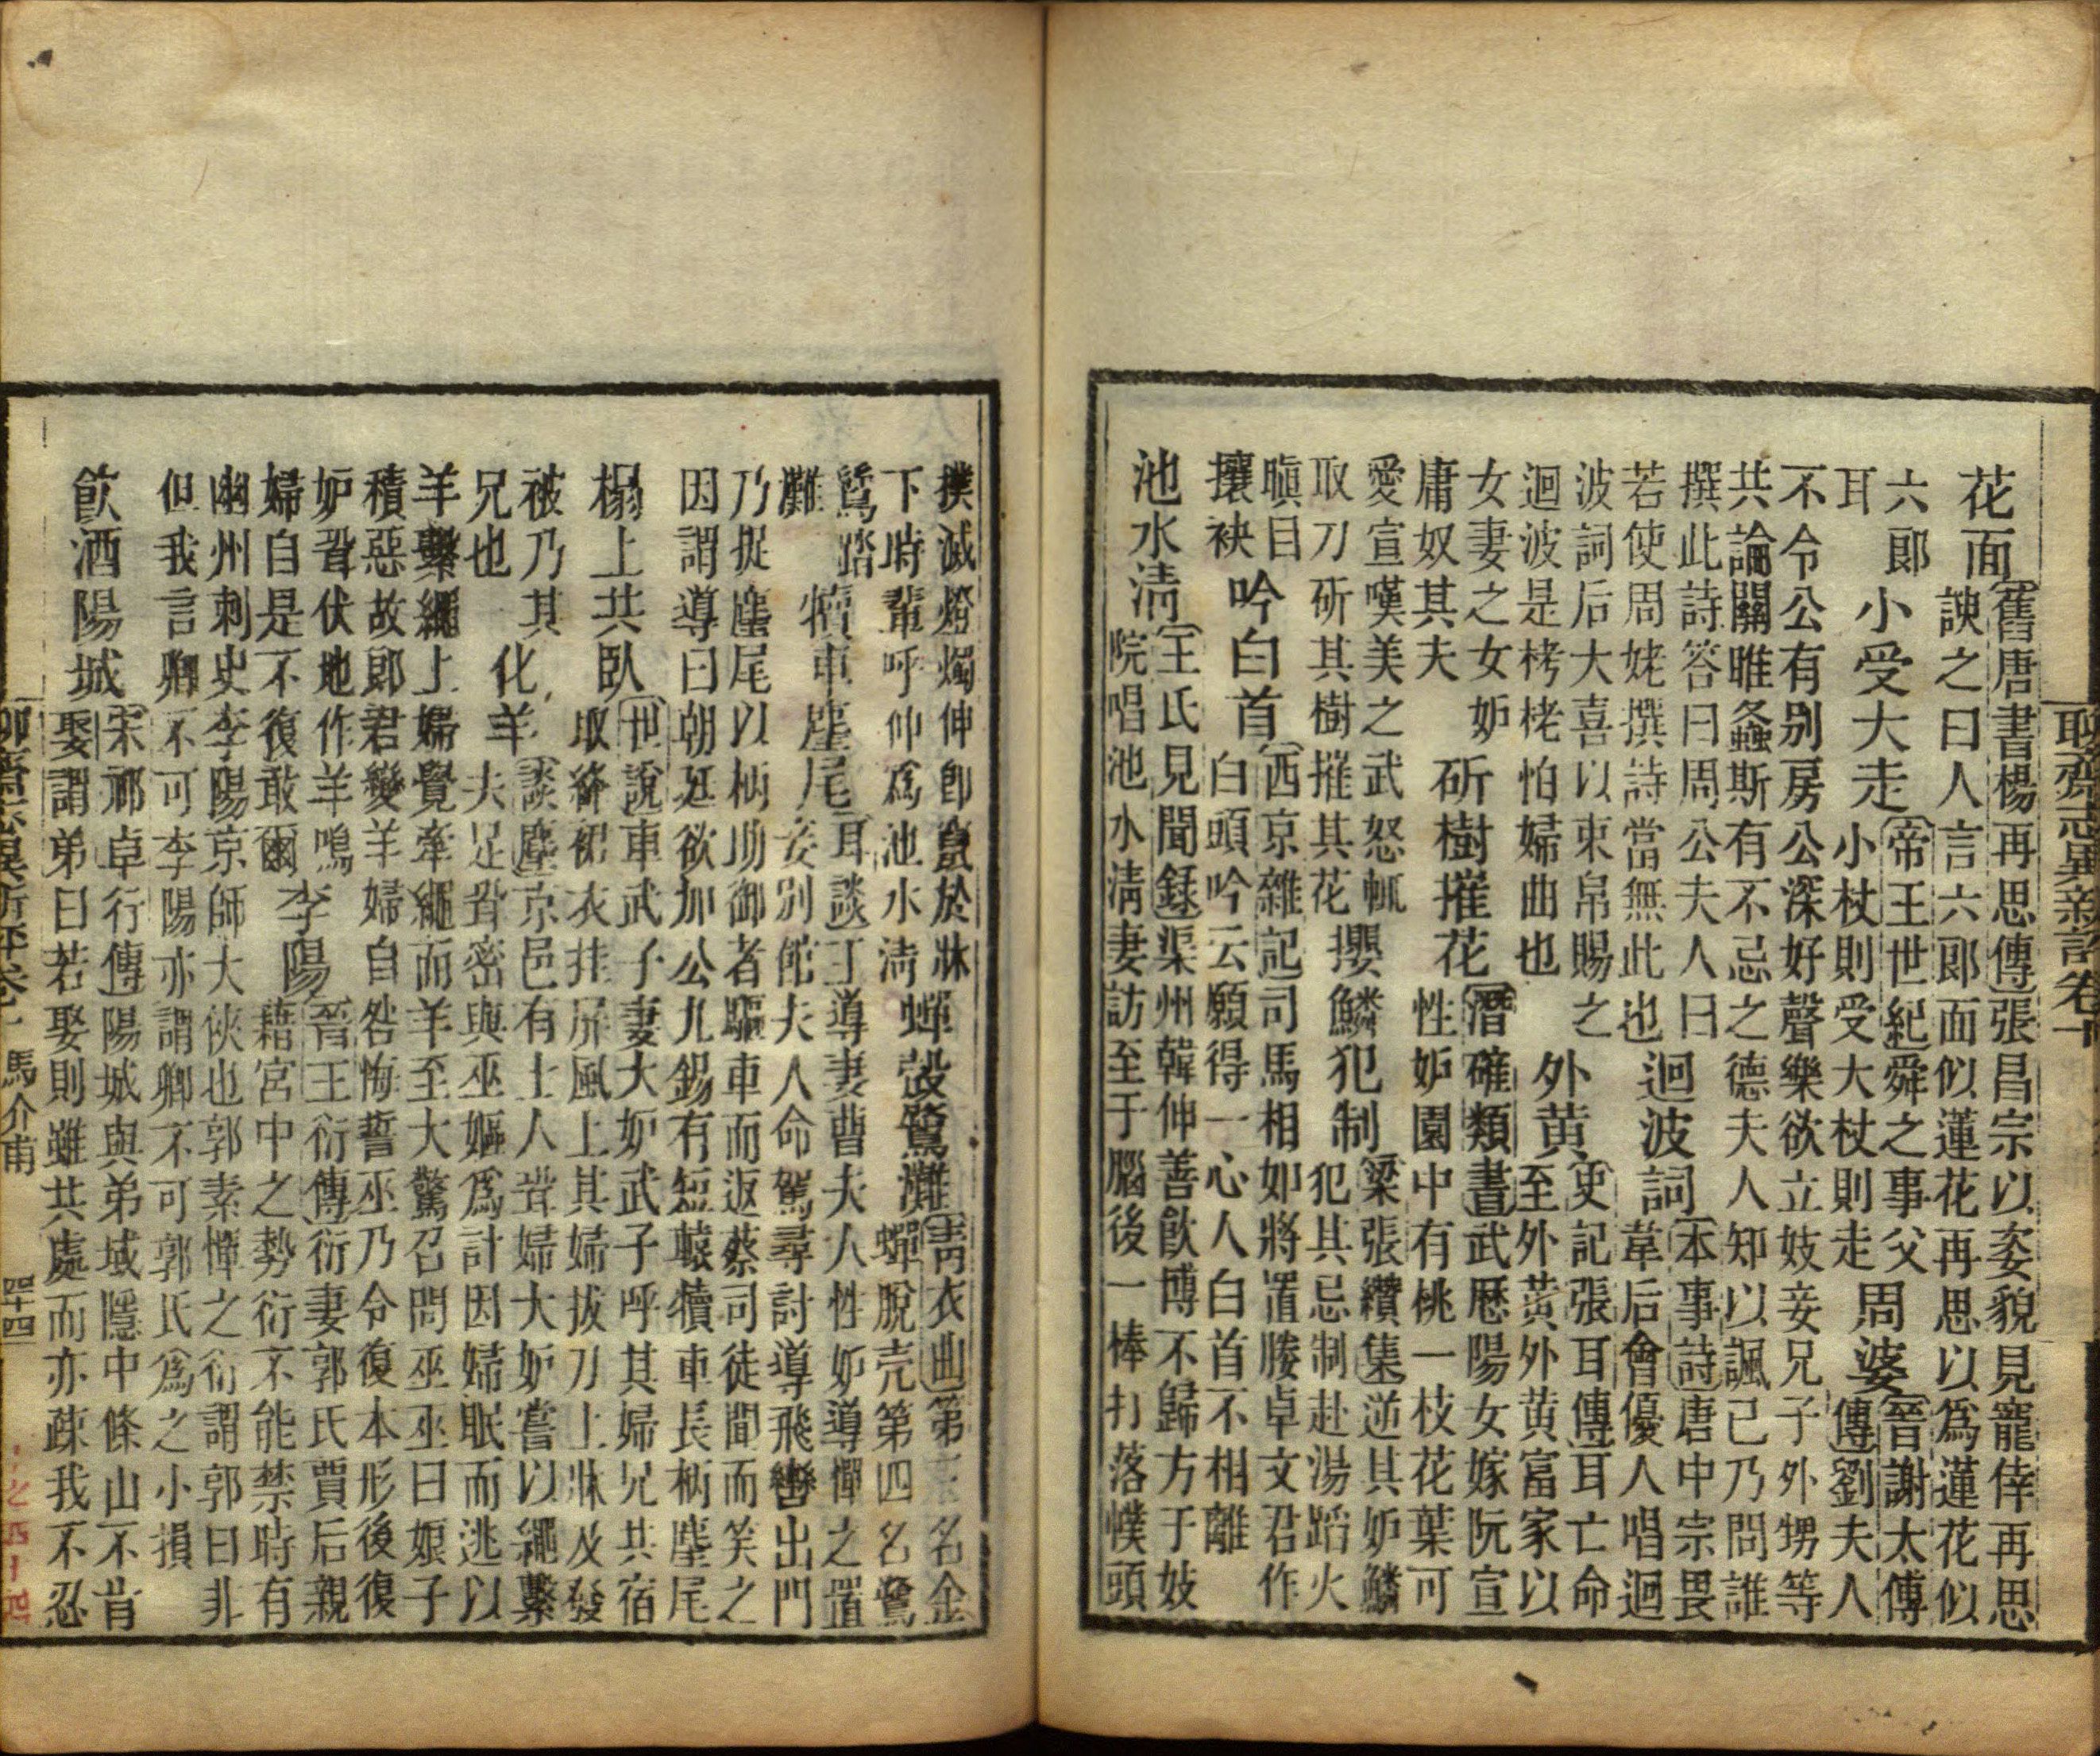 聊齋志異新評卷十
花面
舊唐書楊再思傳張昌宗以姿貌見寵倖再思
諛之曰人言六郎面似蓮花再思以為蓮花似
六郎
耳
小受大走
帝王世紀舜之事父
小杖則受大杖則走
周婆
晉謝太傅
傳劉夫人
不令公有別房公深好聲樂欲立妓妾兄子外甥等
共論關雎螽斯有不忌之德夫人知以諷己乃問誰
撰此詩答曰周公夫人曰
若使周姥撰詩當無此也
迴波詞
本事詩唐中宗畏
韋后會優人唱迴
波詞后大喜以束帛賜之
迴波是栲栳怕婦曲也
外黃
史記張耳傳耳亡命
至外黃外黃富家以
女妻之女妒
庸奴其夫
斫樹摧花
潛確類書武歷陽女嫁阮宣
性妒園中有桃一枝花葉可
愛宣嘆美之武怒輒
取刀斫其樹摧其花
攖鱗犯制
梁張纘集逆其妒鱗
犯其忌制赴湯蹈火
瞋目
攘袂
吟白首
西京雜記司馬相如將置媵卓文君作
白頭吟云願得一心人白首不相離
池水清
王氏見聞錄渠州韓伸善飲博不歸方于妓
院唱池水清妻訪至于腦後一棒打落幞頭
撲滅燈燭伸即竄於牀
下時輩呼伸為池水清
蟬殼鷺灘
青衣曲第三名金
蟬脫壳第四名鷺
鷥踏
灘
犢車麈尾
耳談丁導妻曹夫人性妒導憚之置
妾別館夫人命駕尋討導飛轡出門
乃捉麈尾以柄助御者驅車而返蔡司徒聞而笑之
因謂導曰朝廷欲加公九錫有短轅犢車長柄麈尾
榻上共臥
世說車武子妻大妒武子呼其婦兄共宿
取絳裙衣挂屏風上其婦拔刀上牀及發
被乃其
兄也
化羊
談麈京邑有士人聟婦大妒嘗以繩繫
夫足聟密與巫嫗為計因婦眠而逃以
羊繫繩上婦覺牽繩而羊至大驚召問巫巫曰娘子
積惡故郎君變羊婦自咎悔誓巫乃令復本形後復
妒聟伏地作羊鳴
婦自是不復敢爾
李陽
晉王衍傳衍妻郭氏賈后親
藉宮中之勢衍不能禁時有
幽州刺史李陽京師大俠也郭素憚之衍謂郭曰非
但我言卿不可李陽亦謂卿不可郭氏為之小損
飲酒陽城
宋祁卓行傳陽城與弟域隱中條山不肯
娶謂弟曰若娶則雖共處而亦疎我不忍
聊齋志異新評卷十 馬介甫 四十四
之四十四